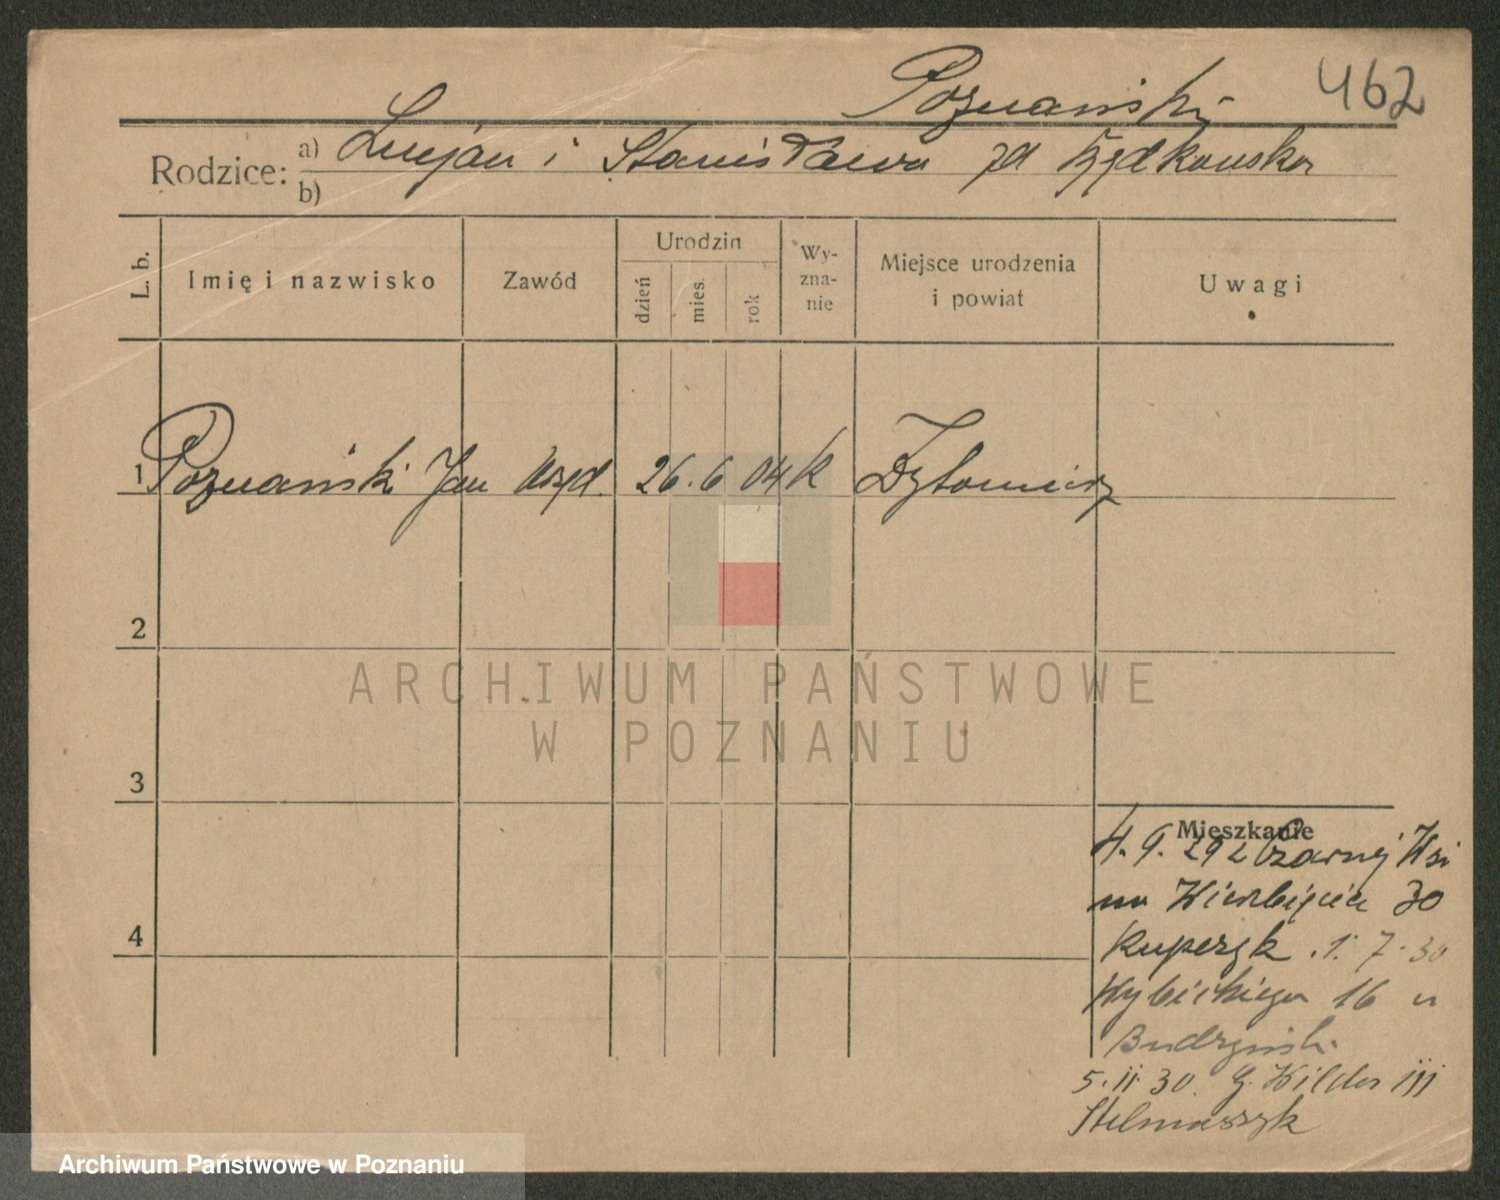 Poznański 462
Rodzice: a) Lucjan i Stanisława zd
b)
L. b. Imię i nazwisko Zawód Urodzin dzień mies. rok Wy-zna-nie Miejsce urodzenia i powiat Uwagi
1 Poznański Jan Urzęd. 26. 6 04 K Żytomierz
2
3
4
Mieszkanie
4. 9. 29 z Czarnej Wsi
na Wierzbięcice 30
1. 7. 30
Wybickiego 16 u
Budzyński
5. 11. 30. G. Wilda 111
Stelmaszyk
ARCHIWUM PAŃSTWOWE
W POZNANIU
Archiwum Państwowe w Poznaniu